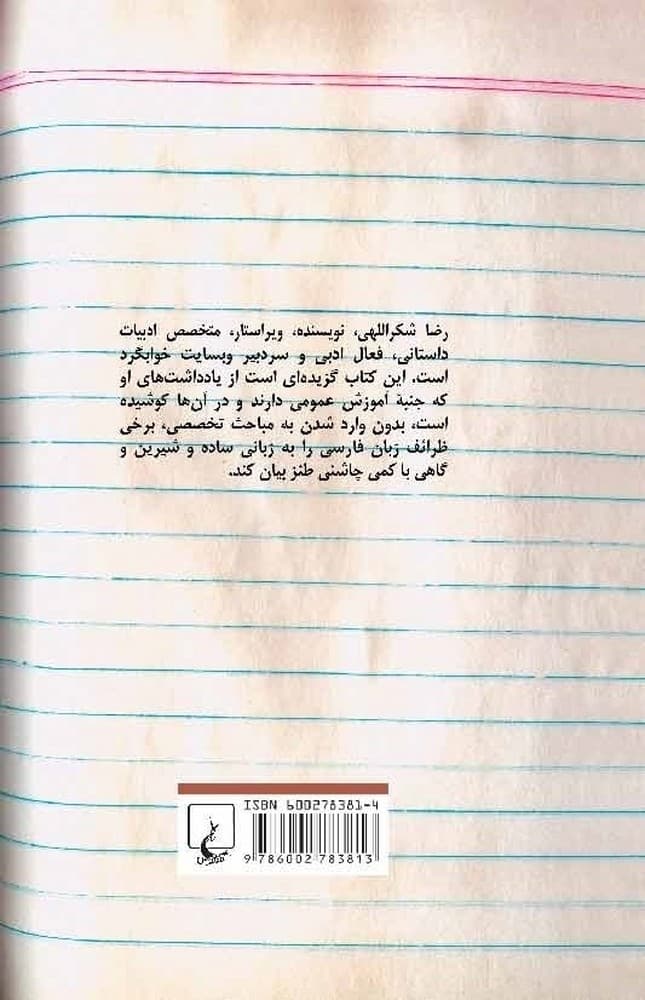 رضا شکراللهی، نویسنده، ویراستار، متخصص ادبیات
داستانی، فعال ادبی و سردبیر وبسایت خوابگرد
است. این کتاب گزیده‌ای است از یادداشت‌های او
که جنبهٔ آموزش عمومی دارند و در آن‌ها کوشیده
است، بدون وارد شدن به مباحث تخصصی، برخی
ظرائف زبان فارسی را به زبانی ساده و شیرین و
گاهی با کمی چاشنی طنز بیان کند.
ISBN 600278381-4
9 786002 783813